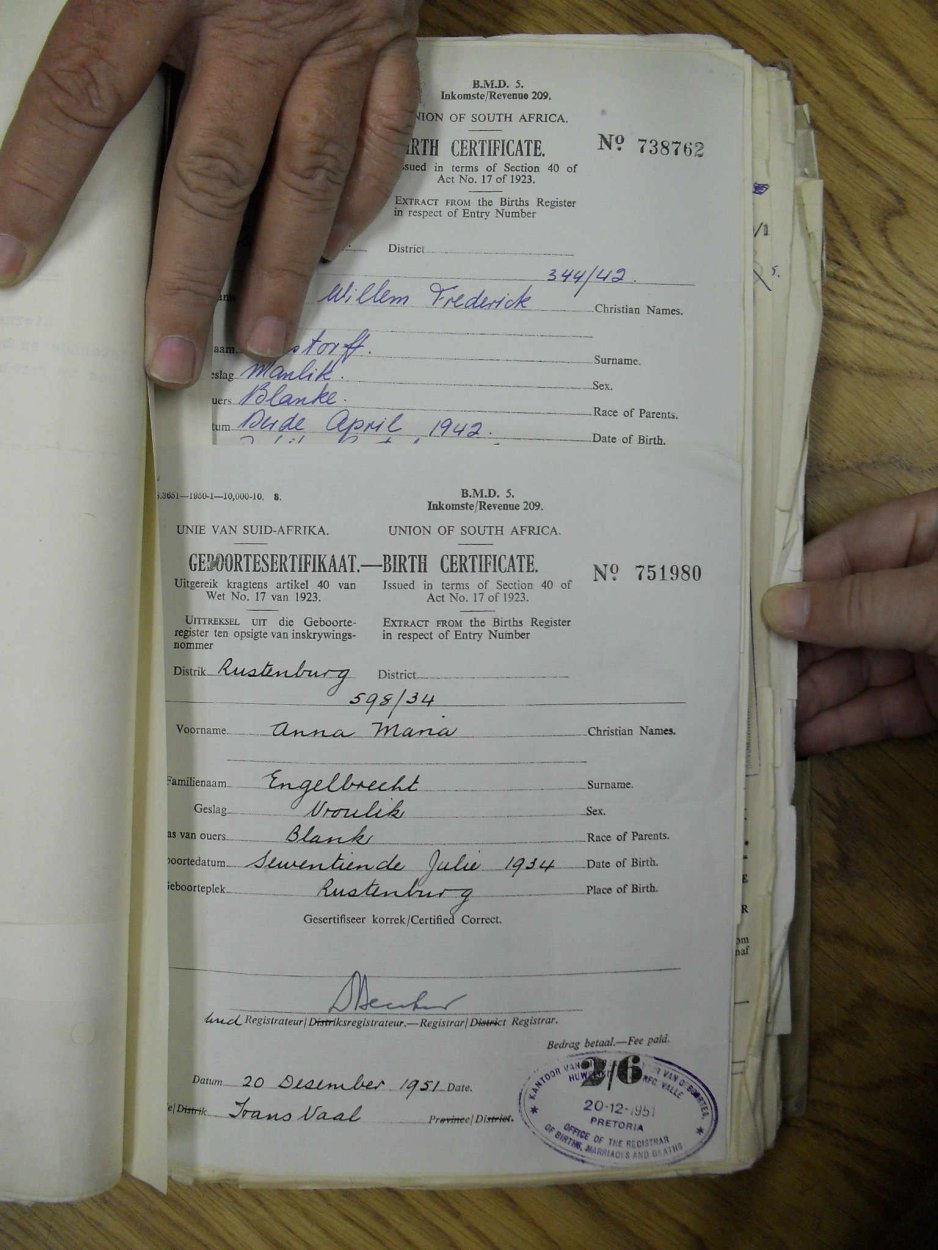 B.M.D. 5.
Inkomste/Revenue 209.
NION OF SOUTH AFRICA.
IRTH CERTIFICATE.
Nº 738762
ssued in terms of Section 40 of
Act No. 17 of 1923.
EXTRACT FROM the Births Register
in respect of Entry Number
District
344/42.
Willem Frederick Christian Names.
aam storff. Surname.
eslag Manlik. Sex.
uers Blanke. Race of Parents.
tum Derde April 1942. Date of Birth.
1950-1—10,000-10. S.
B.M.D. 5.
Inkomste/Revenue 209.
UNIE VAN SUID-AFRIKA. UNION OF SOUTH AFRICA.
GEBOORTESERTIFIKAAT.—BIRTH CERTIFICATE. Nº 751980
Uitgereik kragtens artikel 40 van Issued in terms of Section 40 of
Wet No. 17 van 1923. Act No. 17 of 1923.
UITTREKSEL UIT die Geboorte- EXTRACT FROM the Births Register
register ten opsigte van inskrywings- in respect of Entry Number
nommer
Distrik Rustenburg District
598/34
Voorname Anna Maria Christian Names.
Familienaam Engelbrecht Surname.
Geslag Vroulik Sex.
as van ouers Blank Race of Parents.
oortedatum Sewentiende Julie 1934 Date of Birth.
eboorteplek Rustenburg Place of Birth.
Gesertifiseer korrek/Certified Correct.
Registrateur/Distriksregistrateur.—Registrar/District Registrar.
Bedrag betaal.—Fee paid.
2/6
Datum 20 Desember 1951 Date.
e/Distrik TransVaal Province/District.
KANTOOR VAN
20-12-1951
PRETORIA
OFFICE OF THE REGISTRAR
OF BIRTHS, MARRIAGES AND DEATHS